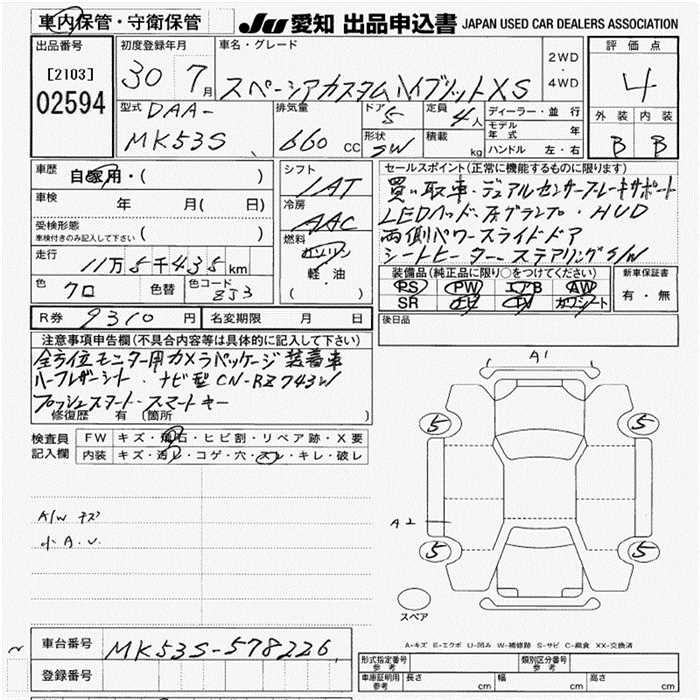 車内保管・守衛保管 JU 愛知 出品申込書 JAPAN USED CAR DEALERS ASSOCIATION
出品番号 [2103] 02594
初度登録年月 30 7月
車名・グレード スペーシアカスタムハイブリットXS
2WD・4WD
評価点 4
外装 内装
B B
型式 DAA-MK53S
排気量 660 CC
ドア 5
形状 SW
定員 4人
積載 kg
ディーラー・並行
モデル年式 年
ハンドル 左・右
車歴 自家用・( )
車検 年 月( 日)
受検形態 車検付きのみ記入して下さい ( )
走行 11万5千435km
色 クロ 色替 色コード ZJ3
シフト IAT
冷房 AAC
燃料 ガソリン
軽・油
( )
セールスポイント(正常に機能するものに限ります)
買い取車・デュアルセンサーブレーキサポート
LEDヘッド、フォグランプ・HUD
両側パワースライドドア
シートヒーター・ステアリングS/W
装備品(純正品に限り○をつけてください)
PS PW エアB AW
SR ナビ TV カワシート
新車保証書
有・無
R券 9310円 名変期限 月 日
後日品
注意事項申告欄(不具合内容等は具体的に記入して下さい)
全方位モニター用カメラパッケージ装着車
ハーフレザーシート・ナビ型CN-RZ743W
プッシュスタート・スマートキー
修復歴 有 (箇所 )
検査員記入欄
FW キズ・飛石・ヒビ割・リペア跡・X要
内装 キズ・汚レ・コゲ・穴・スレ・キレ・破レ
A/W キズ
小A.U.
A1
5 5
A2
5 5
スペア
A-キズ E-エクボ U-凹み W-補修跡 S-サビ C-腐食 XX-交換済
車台番号 MK53S-578226
登録番号
形式指定番号 参考 類別区分番号 参考
車庫証明用 参考 長さ cm 幅 cm 高さ cm